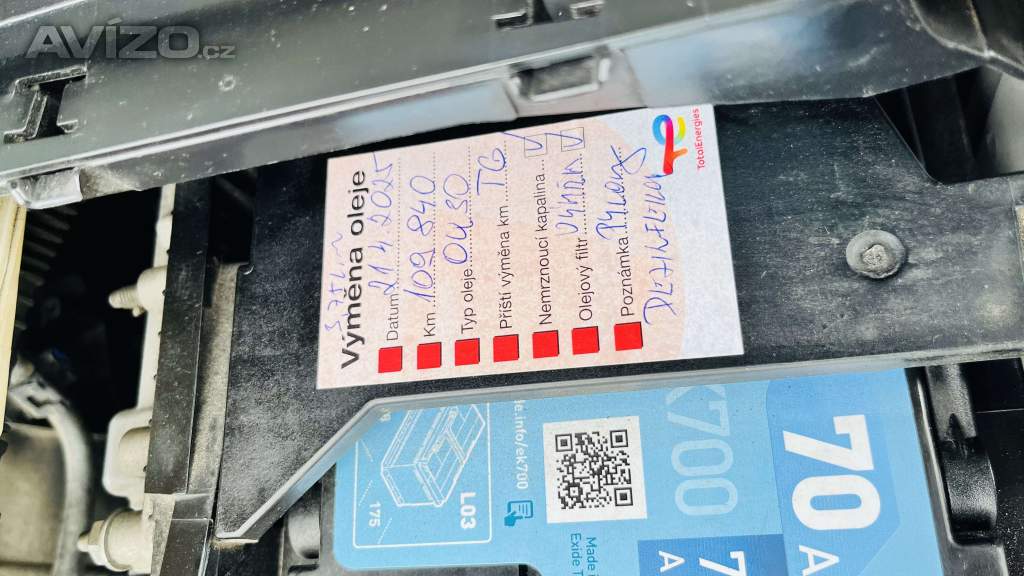 AVÍZO.cz
3,75L
Výměna oleje
Datum 21.4.2025
Km 109 840
Typ oleje 0W30
Příští výměna km
Nemrznoucí kapalina
Olejový filtr
Poznámka
TotalEnergies
L03
175
te.info/ek700
K700
70
A
7
A
Made i
Exide T